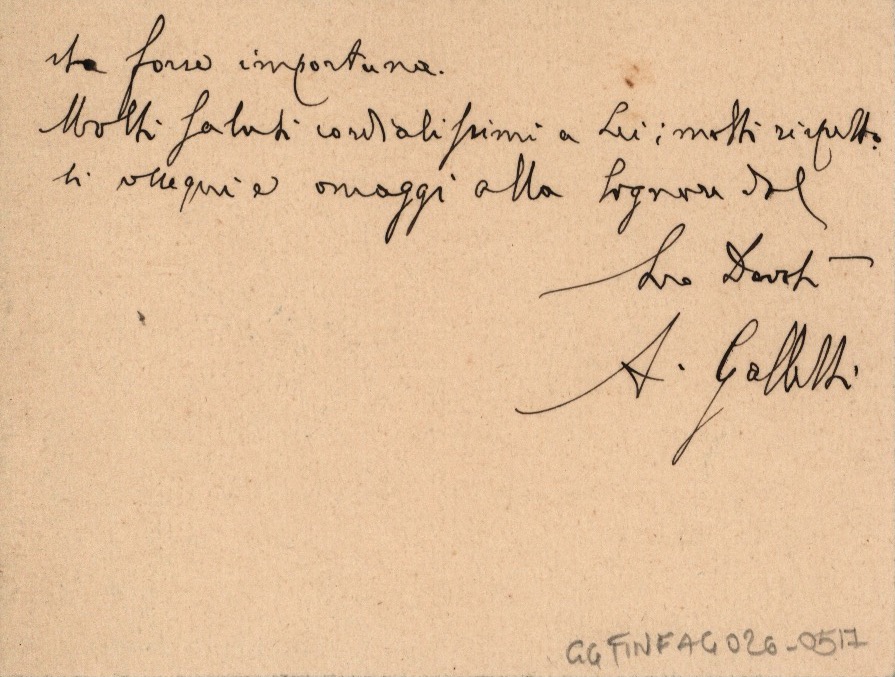 sta forse importuna.
Molti saluti cordialissimi a Lei; molti rispetto
si ossequi e omaggi alla Signora dal
Suo Devot
A. Galletti
GGFINFAG026-0517